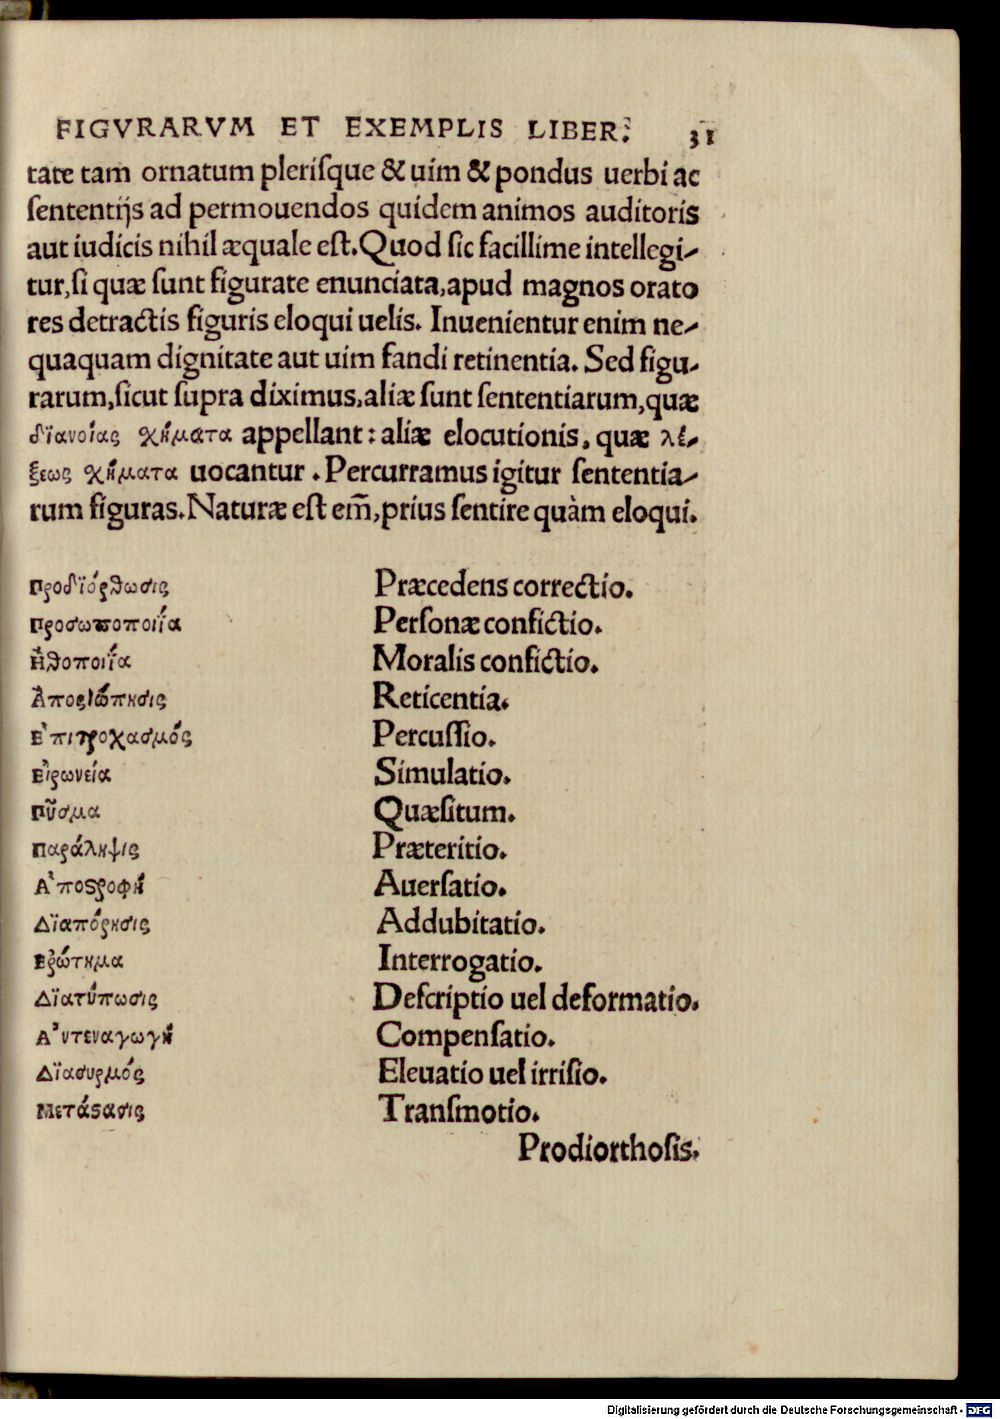 FIGVRARVM ET EXEMPLIS LIBER. 31
tate tam ornatum pleriſque & uim & pondus uerbi ac
ſententijs ad permouendos quidem animos auditoris
aut iudicis nihil æquale eſt. Quod ſic facillime intellegi-
tur, ſi quæ ſunt figurate enunciata, apud magnos orato
res detractis figuris eloqui uelis. Inuenientur enim ne-
quaquam dignitate aut uim fandi retinentia. Sed figu-
rarum, ſicut ſupra diximus, aliæ ſunt ſententiarum, quæ
διανοίας χήματα appellant: aliæ elocutionis, quæ λέ-
ξεως χήματα uocantur. Percurramus igitur ſententia-
rum figuras. Naturæ eſt em̃, prius ſentire quàm eloqui.
Προδϊόρθωσις Præcedens correctio.
Προσωποποιΐα Perſonæ confictio.
Ἠθοποιΐα Moralis confictio.
Ἀποσιώπησις Reticentia.
Ἐπιτροχασμός Percuſſio.
Εἰρωνεία Simulatio.
Πῦσμα Quæſitum.
Παράληψις Præteritio.
Ἀποϛροφή Auerſatio.
Δϊαπόρησις Addubitatio.
Ἐρώτημα Interrogatio.
Δϊατύπωσις Deſcriptio uel deformatio.
Ἀντεναγωγή Compenſatio.
Δϊασυρμός Eleuatio uel irriſio.
Μετάϛασις Tranſmotio.
Prodiorthoſis.
Digitalisierung gefördert durch die Deutsche Forschungsgemeinschaft - DFG